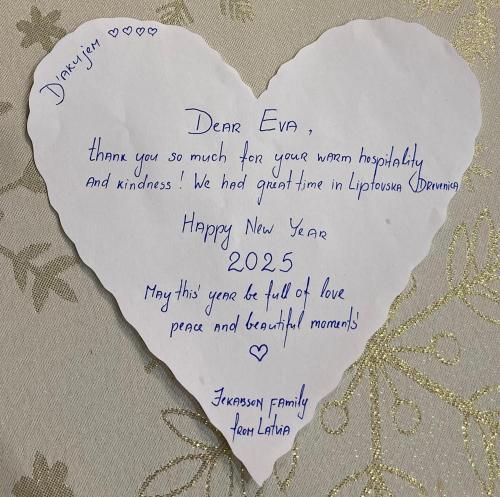 Ďakujem ♡♡♡♡
Dear Eva,
thank you so much for your warm hospitality
and kindness! We had great time in Liptovska
Happy New Year
2025
May this year be full of love
peace and beautiful moments
♡
family
from Latvia